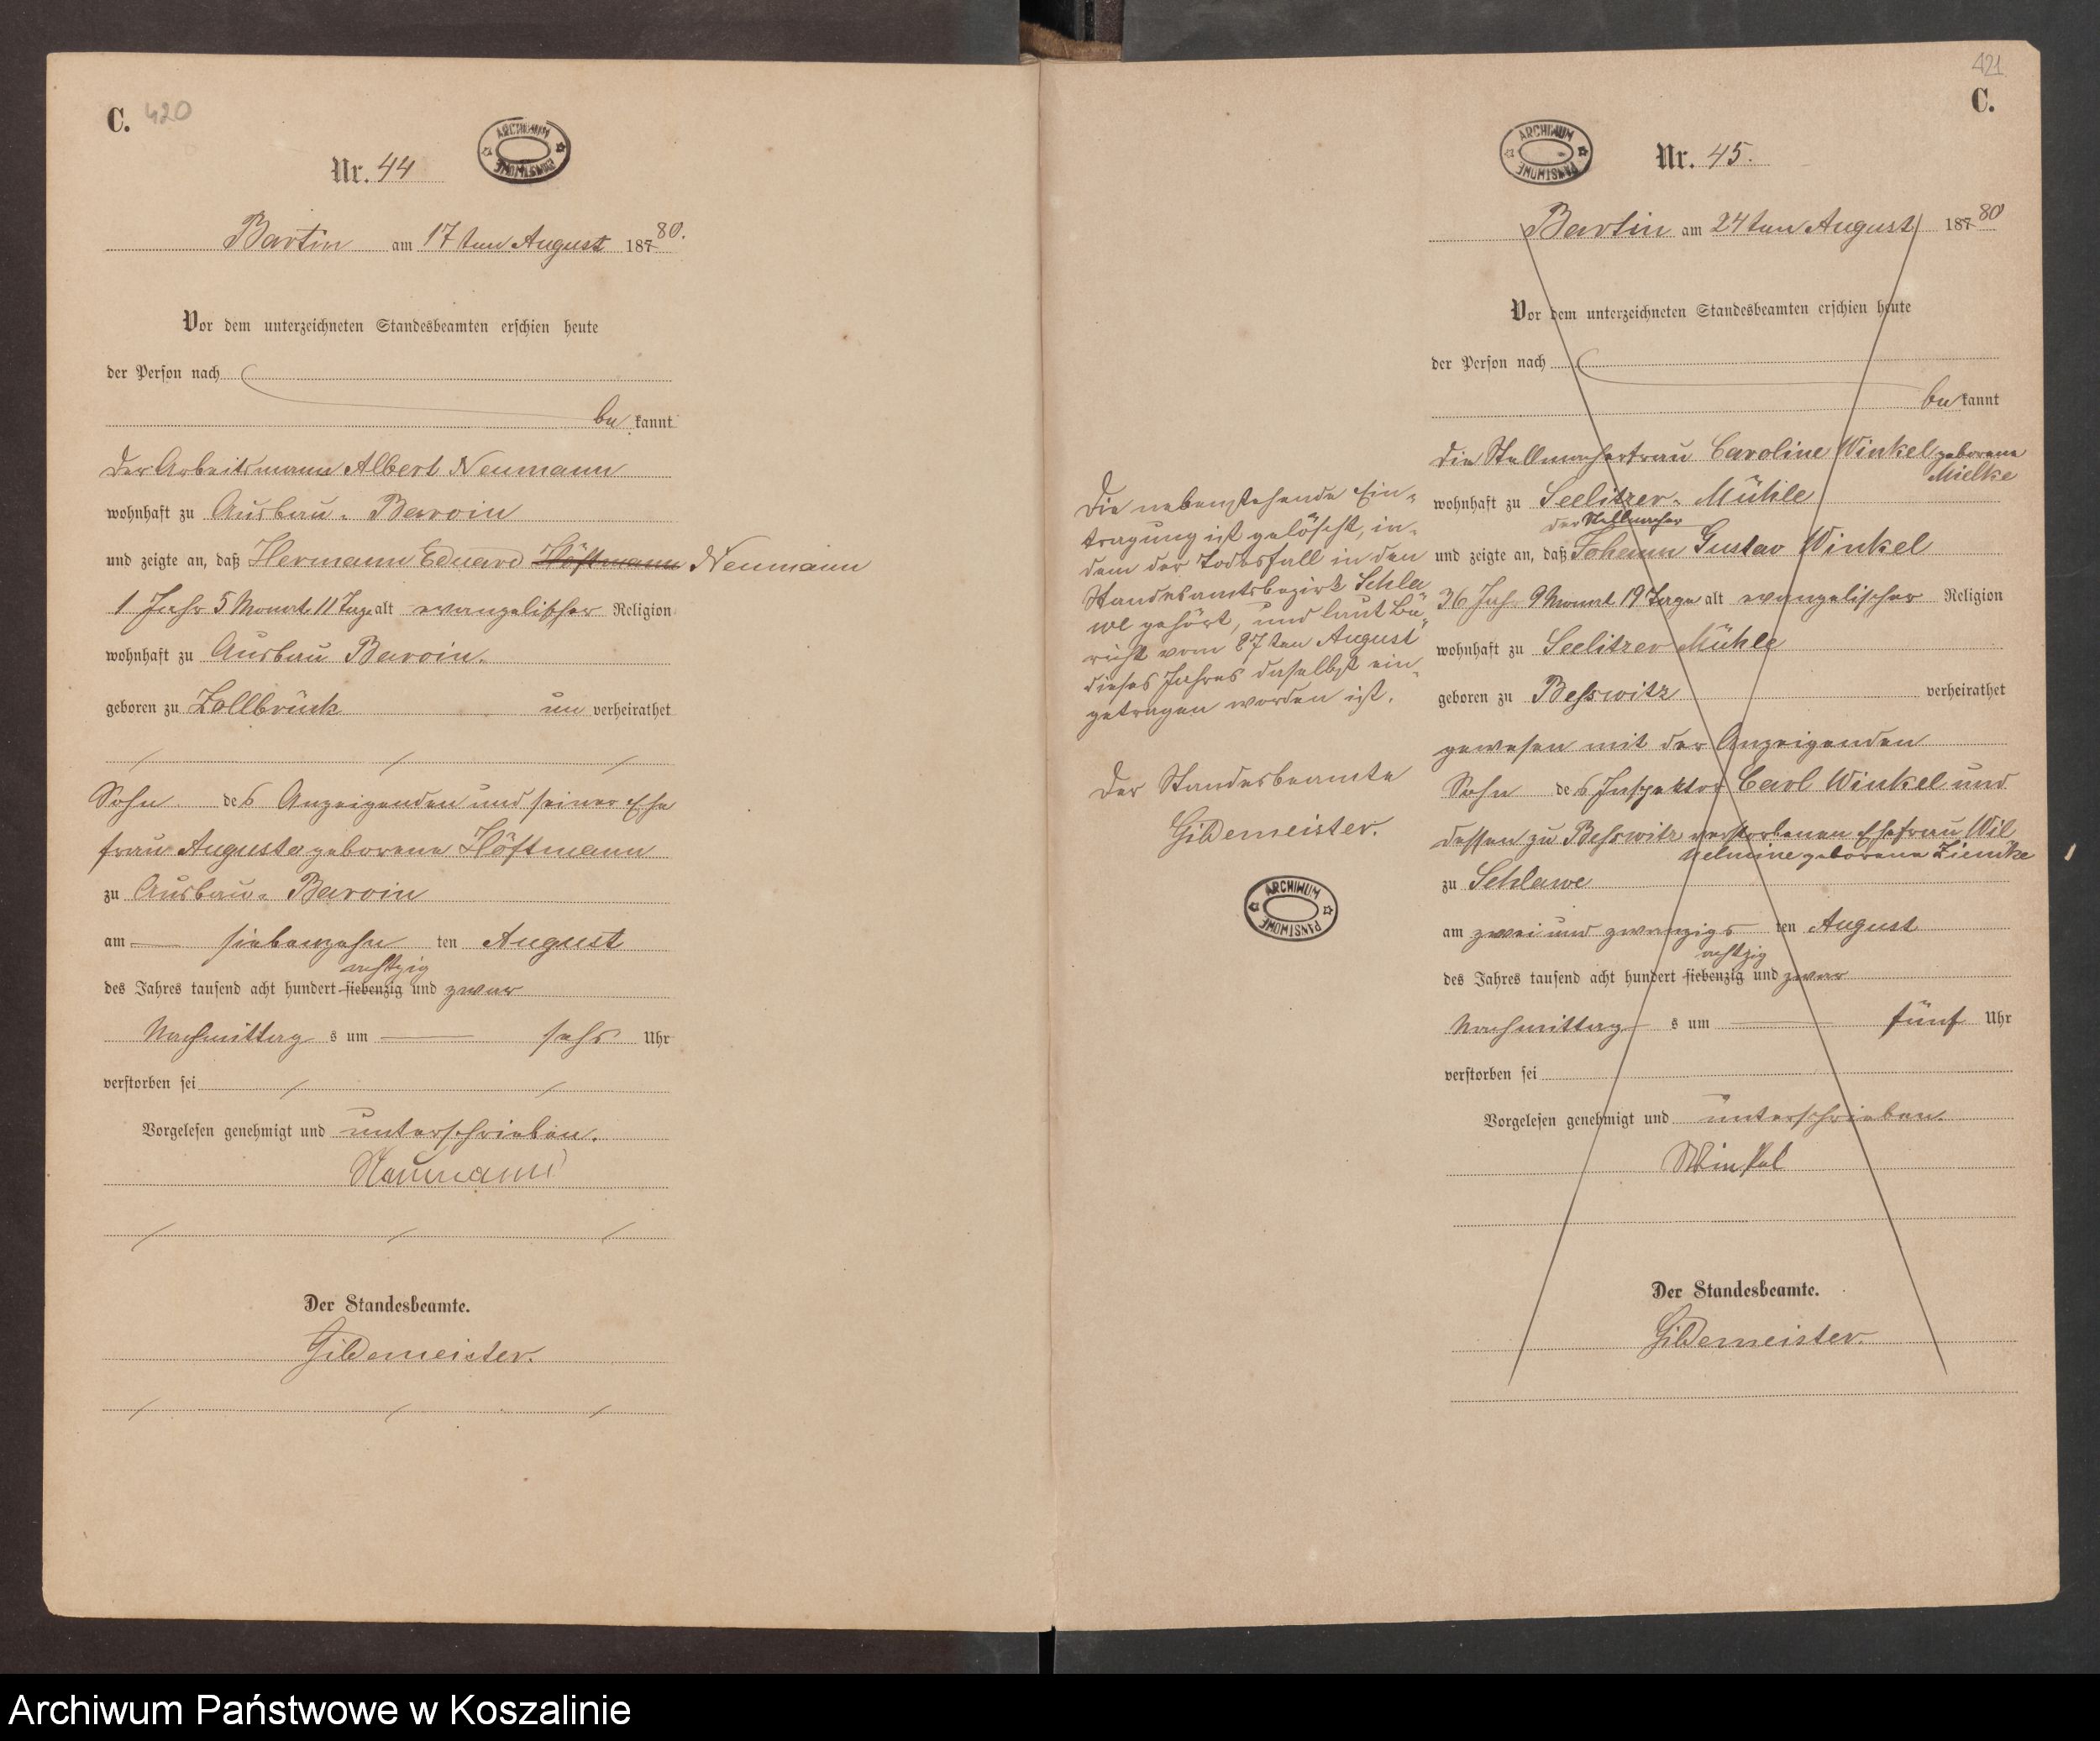 C. 420
ARCHIWUM PAŃSTWOWE
Nr. 44
Bartin am 17ten August 18780.
Vor dem unterzeichneten Standesbeamten erschien heute
der Person nach
be kannt
der Arbeitsmann Albert Neumann
wohnhaft zu Ausbau-Barvin
und zeigte an, daß Hermann Eduard Höftmann Neumann
1 Jahr 5 Monat 11 Tage alt evangelischer Religion
wohnhaft zu Ausbau Barvin.
geboren zu Zollbrück un verheirathet
Sohn des Anzeigenden und seiner Ehe
frau Auguste geborene Höftmann
zu Ausbau-Barvin
am siebenzehn ten August
achtzig
des Jahres tausend acht hundert siebenzig und zwar
Nachmittag s um sechs Uhr
verstorben sei
Vorgelesen genehmigt und unterschrieben.
Neumann
Der Standesbeamte.
Gildemeister.
421
C.
ARCHIWUM PAŃSTWOWE
Nr. 45.
Bartin am 24ten August 18780
Vor dem unterzeichneten Standesbeamten erschien heute
der Person nach
be kannt
die Stellmacherfrau Caroline Winkel geborene
Mielke
wohnhaft zu Seelitzer-Mühle
der Stellmacher
und zeigte an, daß Johann Gustav Winkel
36 Jahr 9 Monat 19 Tage alt evangelischer Religion
wohnhaft zu Seelitzer Mühle
geboren zu Besswitz verheirathet
gewesen mit der Anzeigenden
Sohn des Inspektor Carl Winkel und
dessen zu Besswitz verstorbenen Ehefrau Wil
helmine geborene Ziemke
zu Schlawe
am zwei und zwanzigs ten August
achtzig
des Jahres tausend acht hundert siebenzig und zwar
Nachmittag s um fünf Uhr
verstorben sei
Vorgelesen genehmigt und unterschrieben.
Winkel
Der Standesbeamte.
Gildemeister.
Die nebenstehende Ein-
tragung ist gelöscht, in-
dem der Todesfall in den
Standesamtsbezirk Schla
we gehört, und laut Be-
richt vom 27ten August
dieses Jahres daselbst ein-
getragen worden ist.
Der Standesbeamte
Gildemeister.
ARCHIWUM PAŃSTWOWE
Archiwum Państwowe w Koszalinie